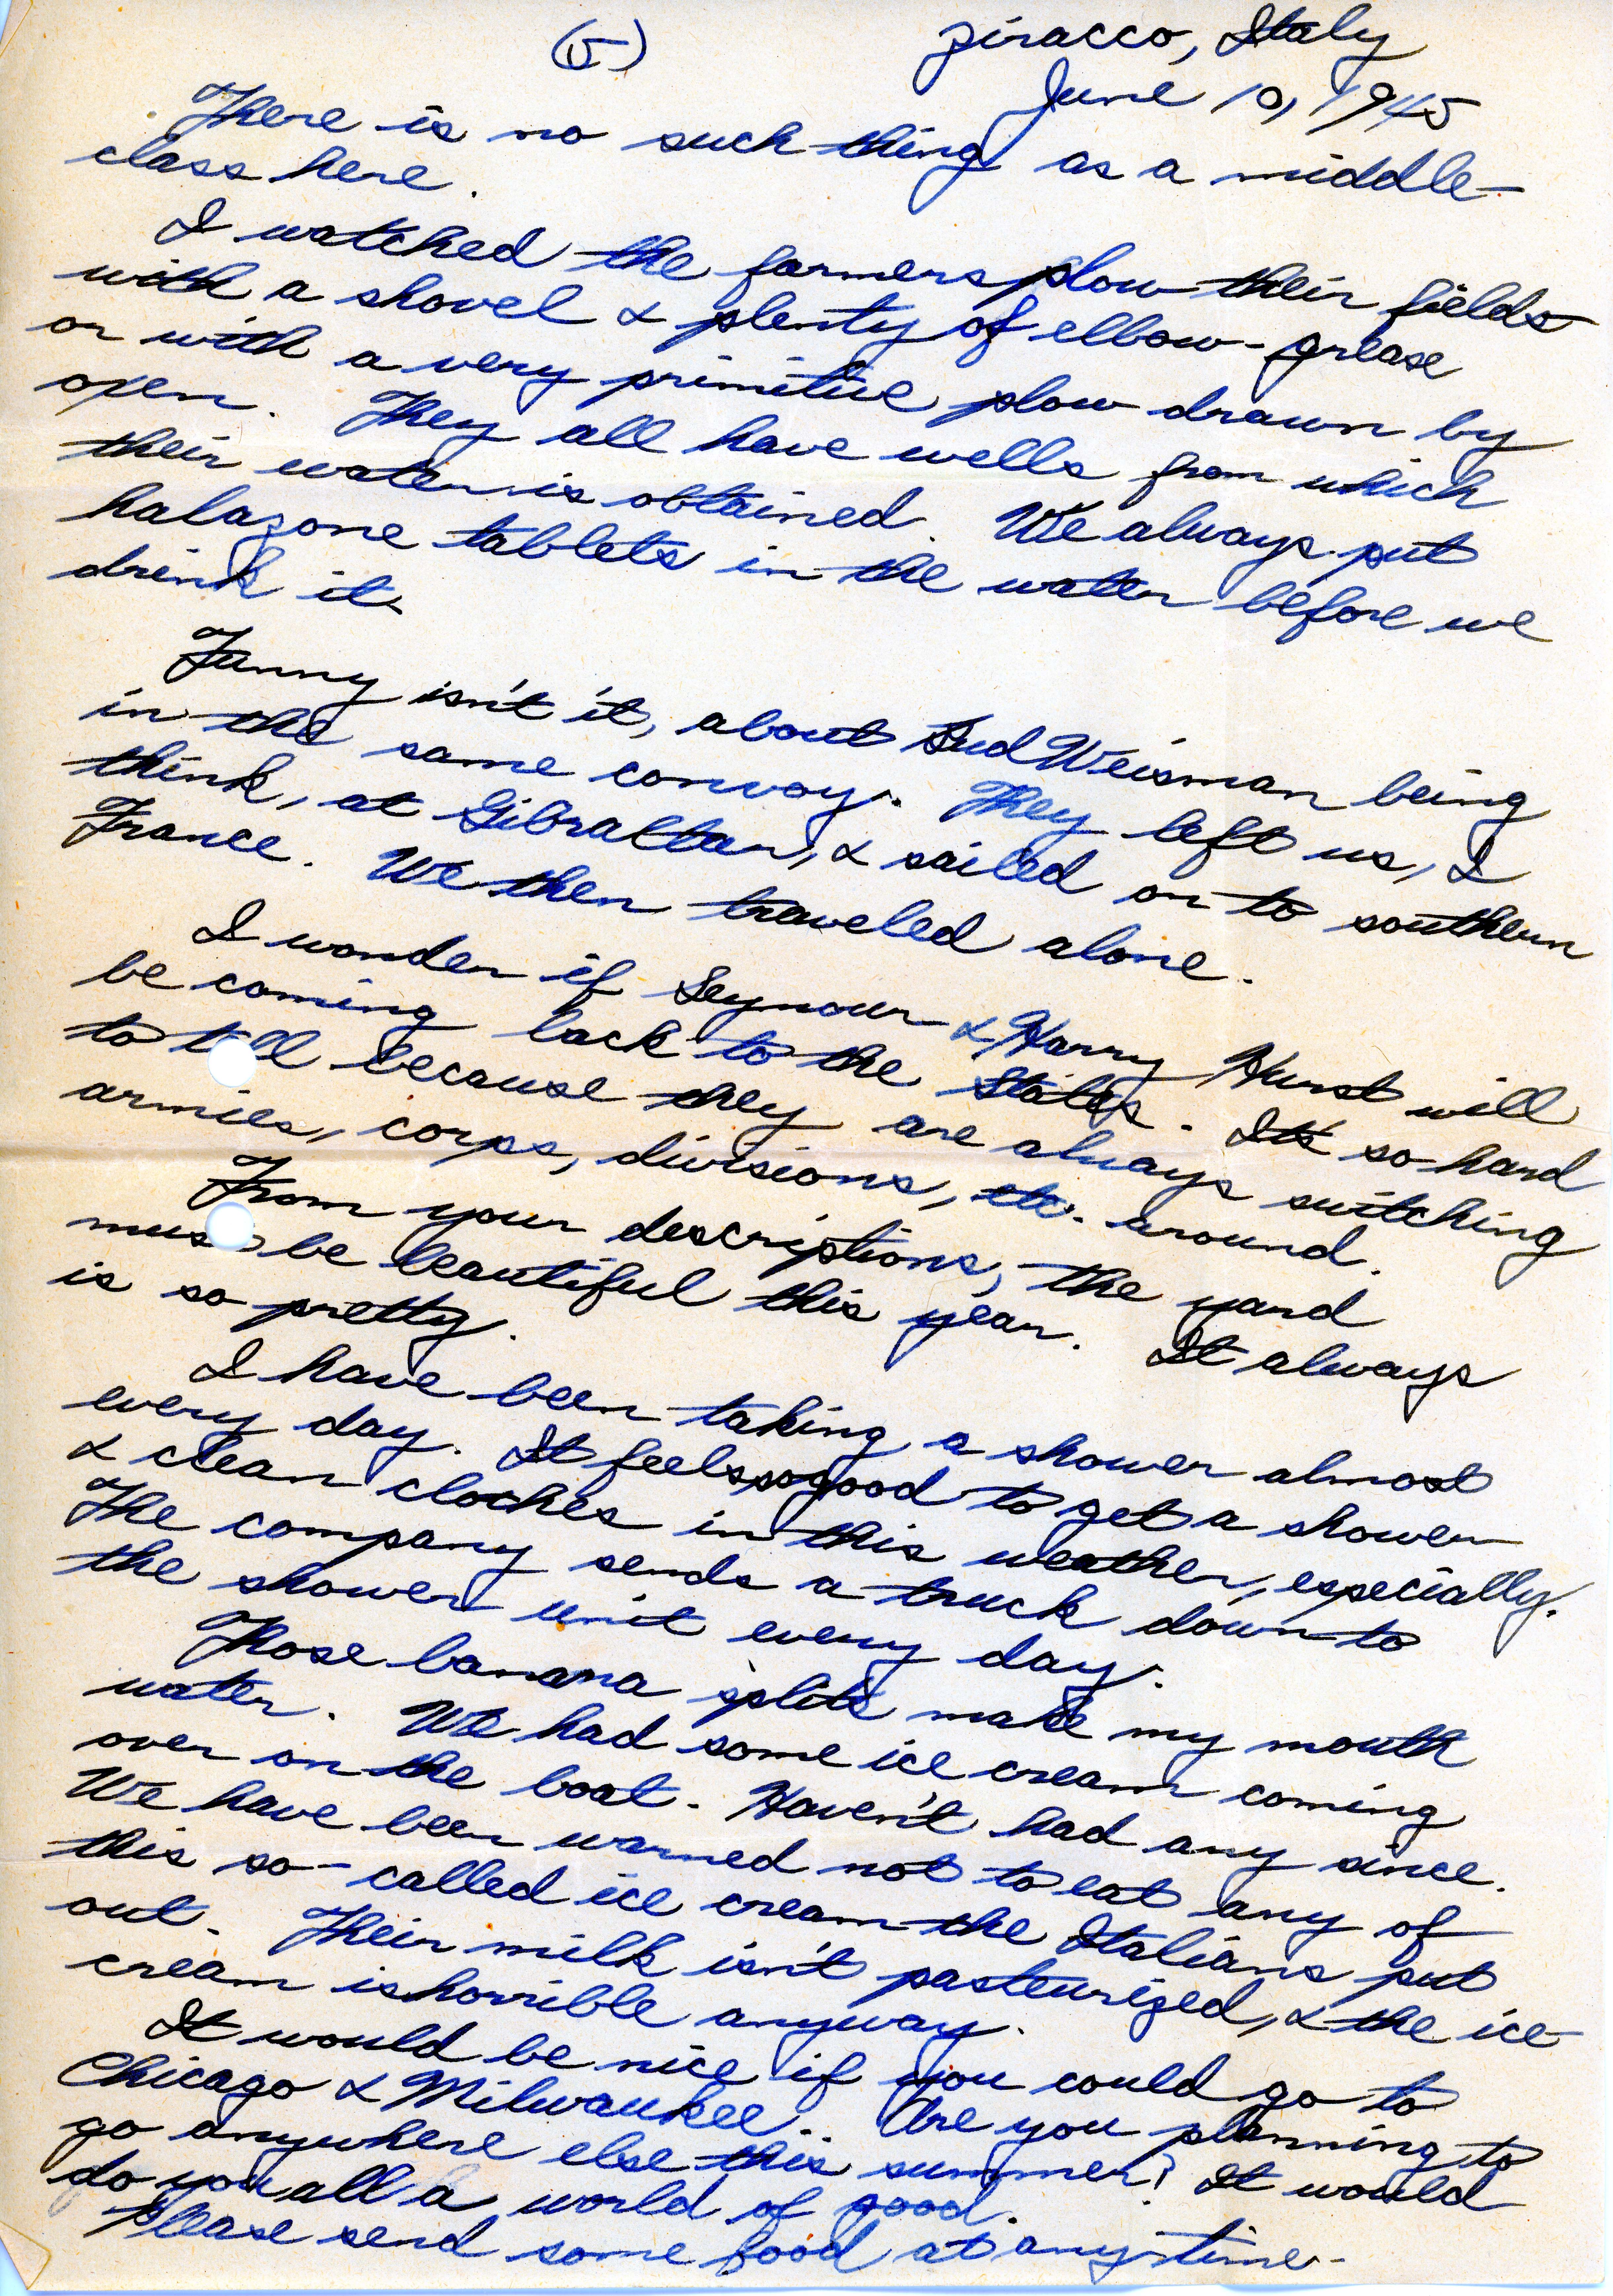 (5)
Ziracco, Italy
June 10, 1945
There is no such thing as a middle-
class here.
I watched the farmers plow their fields
with a shovel & plenty of elbow-grease
or with a very primitive plow drawn by
oxen. They all have wells from which
their water is obtained. We always put
halazone tablets in the water before we
drink it.
Funny isn't it, about Sud Weisman being
in the same convoy. They left us, I
think, at Gibraltar, & sailed on to southern
France. We then traveled alone.
I wonder if Seymour & Harry Hurst will
be coming back to the States. It's so hard
to tell because they are always switching
armies, corps, divisions, etc. around.
From your descriptions, the yard
must be beautiful this year. It always
is so pretty.
I have been taking a shower almost
every day. It feels so good to get a shower
& clean clothes in this weather, especially.
The company sends a truck down to
the shower unit every day.
Those banana splits make my mouth
water. We had some ice cream coming
over on the boat. Haven't had any since.
We have been warned not to eat any of
this so-called ice cream the Italians put
out. Their milk isn't pasteurized, & the ice
cream is horrible anyway.
It would be nice if you could go to
Chicago & Milwaukee. Are you planning to
go anywhere else this summer? It would
do you all a world of good.
Please send some food at anytime.